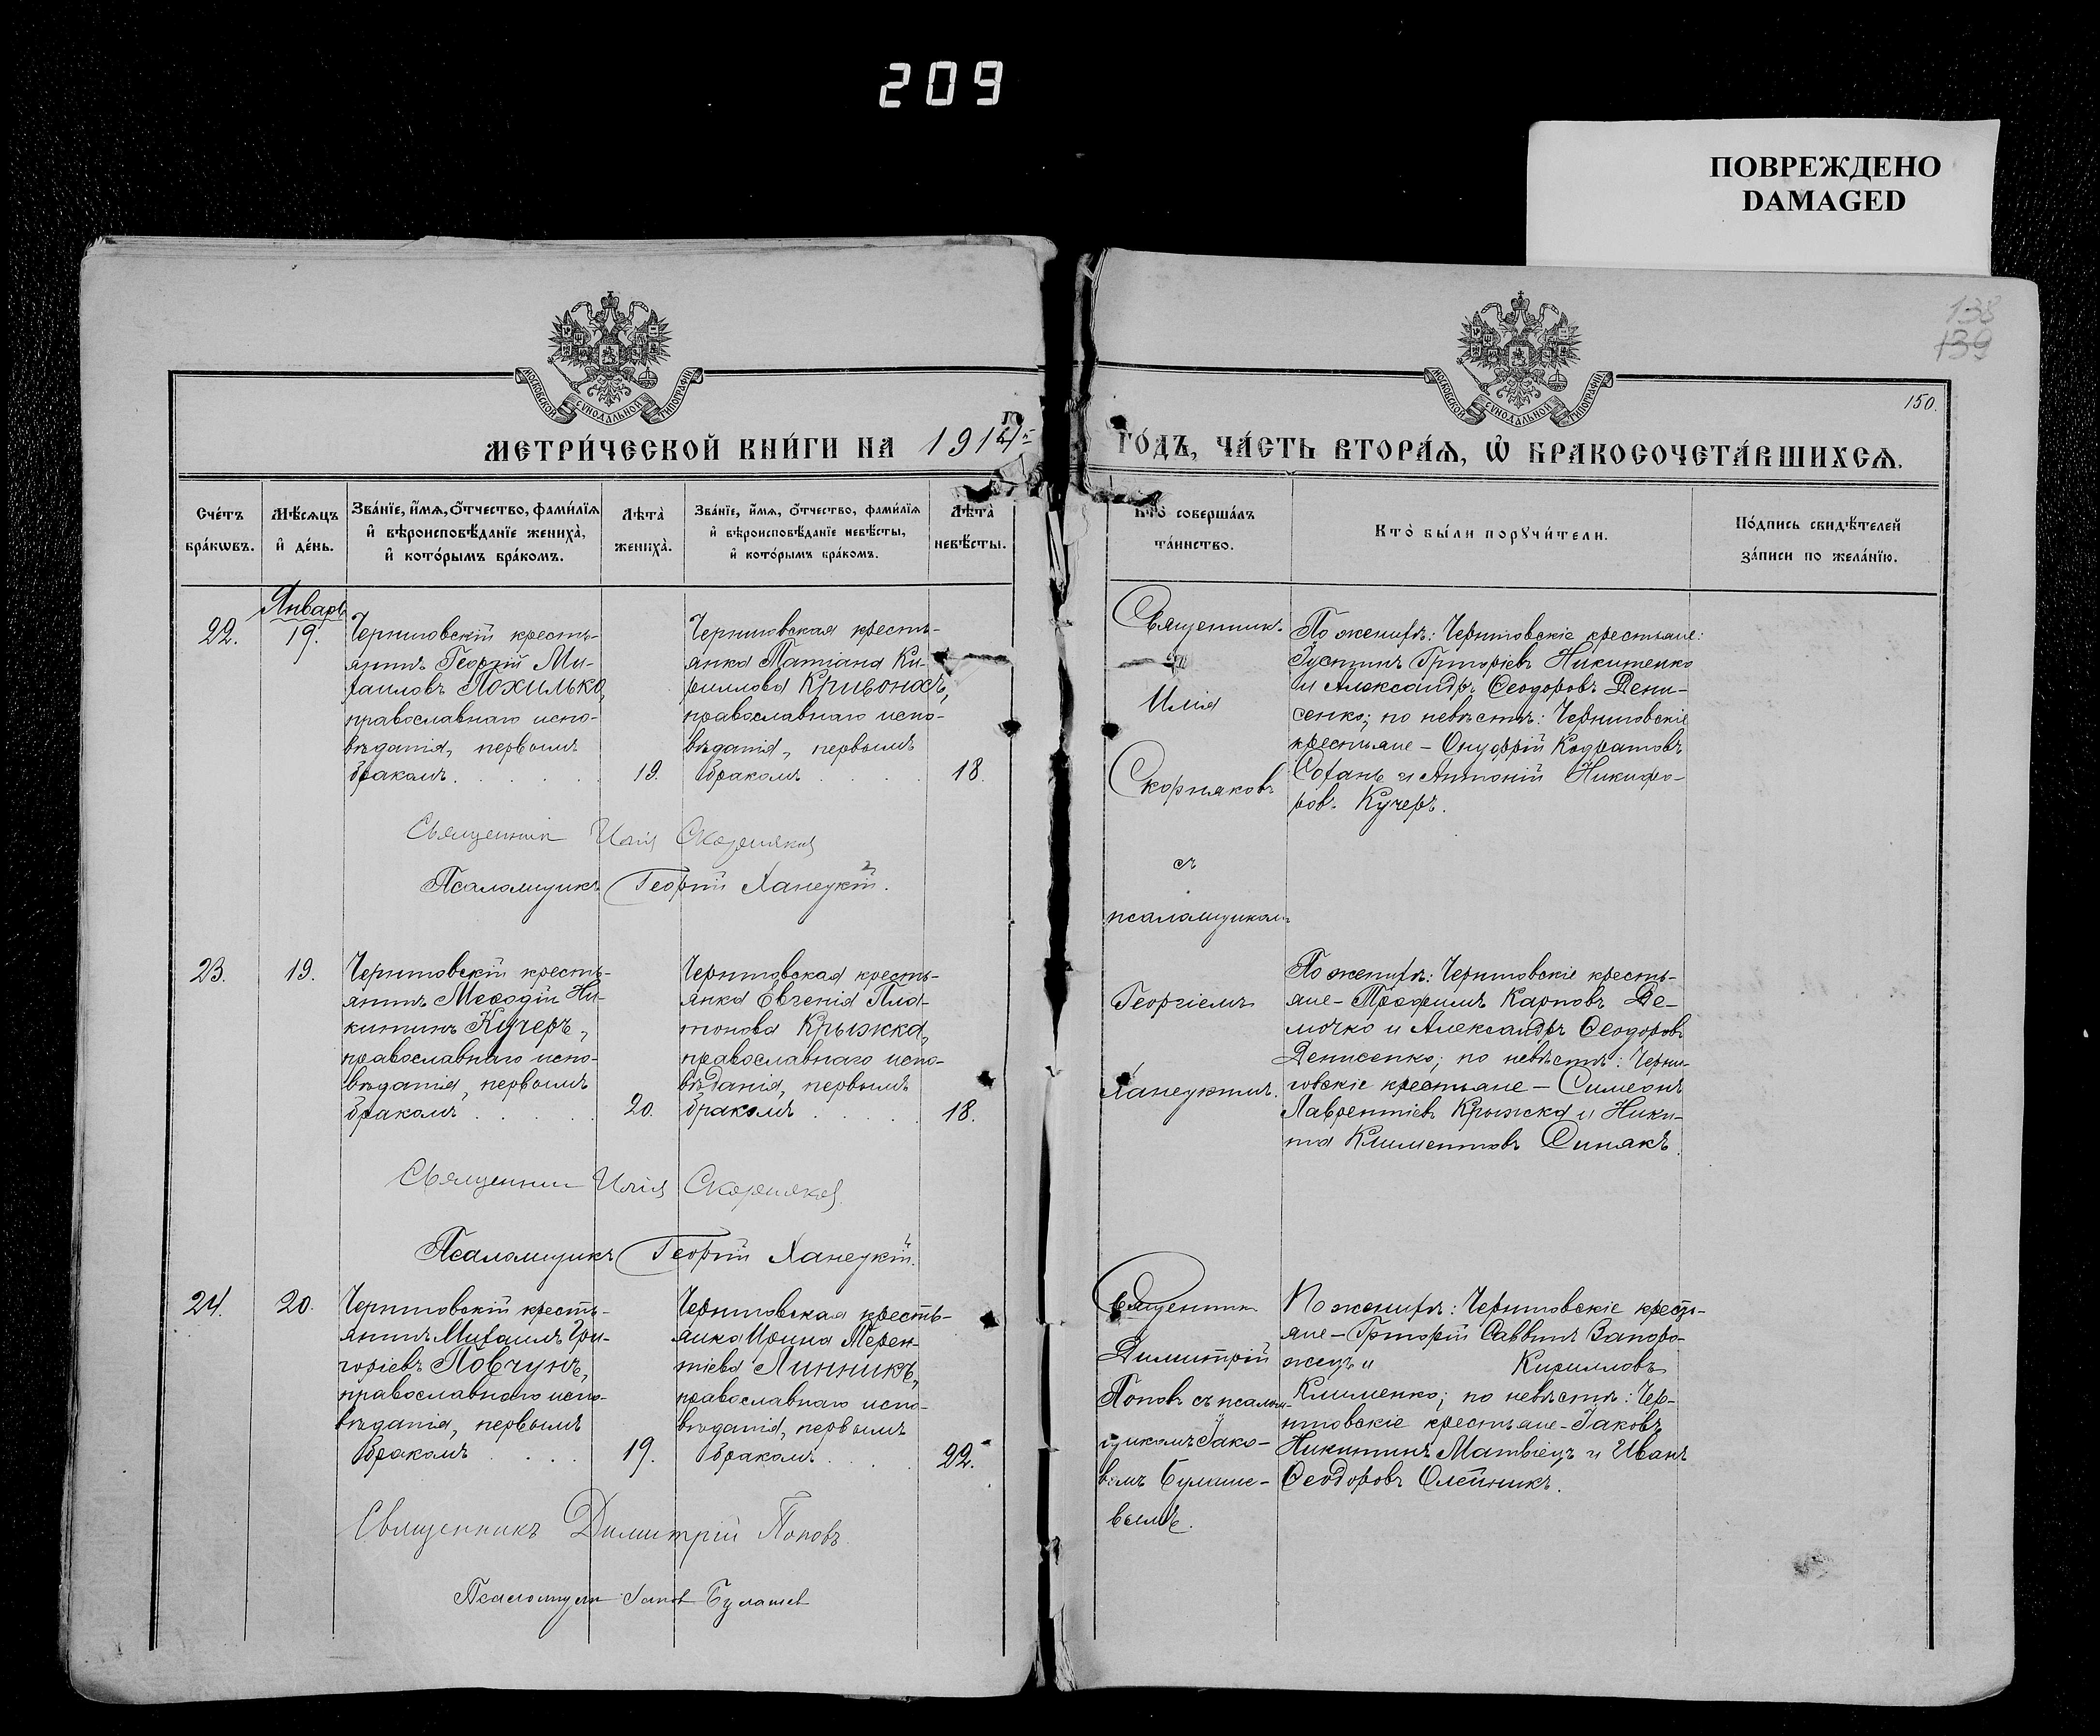 209
ПОВРЕЖДЕНО
DAMAGED
138
139
150.
МОСКОВСКОЙ СѴНОДАЛЬНОЙ ТИПОГРАФІИ
МОСКОВСКОЙ СѴНОДАЛЬНОЙ ТИПОГРАФІИ
МЕТРИ́ЧЕСКОЙ КНИ́ГИ НА 1914й
ГО́ДЪ, ЧА́СТЬ ВТОРА́Ѧ, Ѡ҆ БРАКОСОЧЕТА́ВШИХСѦ.
Сче́тъ
бра́кѡвъ.
Мѣ́сѧцъ
и҆ де́нь.
Зва́нїе, и҆́мѧ, ѻ҆́тчество, фами́лїѧ
и҆ вѣроисповѣ́данїе жениха̀,
и҆ кото́рымъ бра́комъ.
Лѣта̀
жениха̀.
Зва́нїе, и҆́мѧ, ѻ҆́тчество, фами́лїѧ
и҆ вѣроисповѣ́данїе невѣ́сты,
и҆ кото́рымъ бра́комъ.
Лѣта̀
невѣ́сты.
Кто̀ соверша́лъ
та́инство.
Кто̀ бы́ли порꙋчи́тели.
По́дпись свидѣ́телей
за́писи по жела́нїю.
Январь
22.
19.
Черниговскій кресть-
янинъ Георгій Ми-
хаиловъ Похилько,
православнаго испо-
вѣданія, первымъ
бракомъ. . . . .
19.
Черниговская кресть-
янка Татіана Ки-
риллова Кривоносъ,
православнаго испо-
вѣданія, первымъ
бракомъ . . . .
18.
Священникъ
Илія
Скорняковъ
съ
псаломщикомъ
Георгіемъ
Ханецкимъ.
По женихѣ: Черниговскіе крестьяне:
Іустинъ Григоріевъ Никитенко
и Александръ Ѳеодоровъ Дени-
сенко; по невѣстѣ: Черниговскіе
крестьяне – Онуфрій Кодратовъ
Сохань и Антоній Никифо-
ровъ Кучеръ.
Священникъ Илія Скорняковъ
Псаломщикъ Георгій Ханецкій.
23.
19.
Черниговскій кресть-
янинъ Меѳодій Ни-
китинъ Кучеръ,
православнаго испо-
вѣданія, первымъ
бракомъ . . . . .
20.
Черниговская кресть-
янка Евгенія Пла-
тонова Крыжка,
православнаго испо-
вѣданія, первымъ
бракомъ . . . .
18.
По женихѣ: Черниговскіе кресть-
яне – Трофимъ Карповъ Де-
мочко и Александръ Ѳеодоровъ
Денисенко; по невѣстѣ: Черни-
говскіе крестьяне – Симеонъ
Лаврентіевъ Крыжка и Ники-
та Климентовъ Синякъ.
Священникъ Илія Скорняковъ
Псаломщикъ Георгій Ханецкій.
24.
20.
Черниговскій кресть-
янинъ Михаилъ Гри-
горіевъ Повчунъ,
православнаго испо-
вѣданія, первымъ
бракомъ . . . .
19.
Черниговская кресть-
янка Ирина Терен-
тіева Линникъ,
православнаго испо-
вѣданія, первымъ
бракомъ . . . .
22.
Священникъ
Димитрій
Поповъ съ псалом-
щикомъ Іако-
вомъ Булаше-
вымъ.
По женихѣ: Черниговскіе кресть-
яне – Григорій Саввинъ Запоро-
жецъ и Кирилловъ
Клименко; по невѣстѣ: Чер-
ниговскіе крестьяне – Іаковъ
Никитинъ Матвіецъ и Иванъ
Ѳеодоровъ Олейникъ.
Священникъ Димитрій Поповъ
Псаломщикъ Іаковъ Булашев